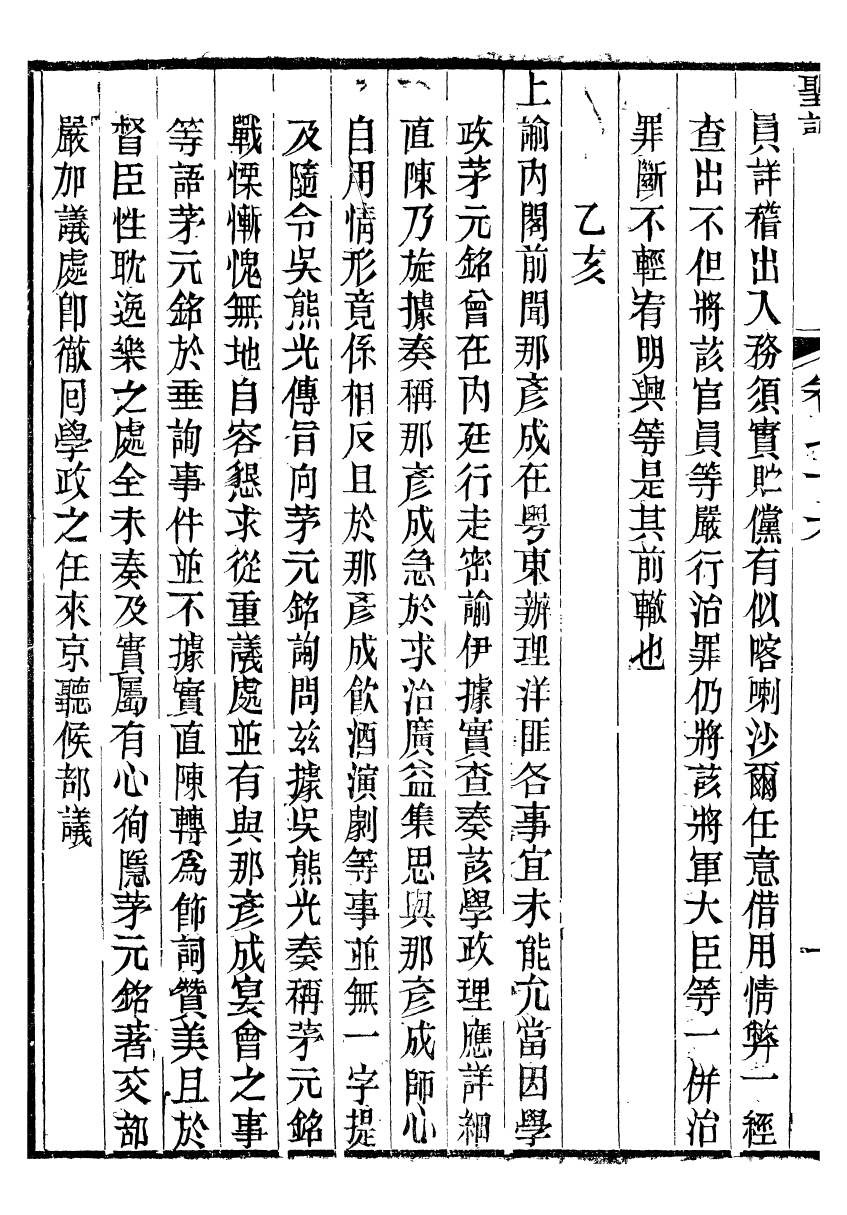 聖訓
員詳稽出入務須實貯儻有似喀喇沙爾任意借用情弊一經
查出不但將該官員等嚴行治罪仍將該將軍大臣等一併治
罪斷不輕宥明興等是其前轍也
乙亥
上諭內閣前聞那彥成在粤東辦理洋匪各事宜未能允當因學
政茅元銘曾在內廷行走密諭伊據實查奏該學政理應詳細
直陳乃旋據奏稱那彥成急於求治廣益集思與那彥成師心
自用情形竟係相反且於那彥成飲酒演劇等事並無一字提
及隨令吳熊光傳旨向茅元銘詢問兹據吳熊光奏稱茅元銘
戰慄慚愧無地自容懇求從重議處並有與那彥成宴會之事
等語茅元銘於垂詢事件並不據實直陳轉爲飾詞贊美且於
督臣性耽逸樂之處全未奏及實屬有心徇隱茅元銘著交部
嚴加議處卽徹回學政之任來京聽候部議